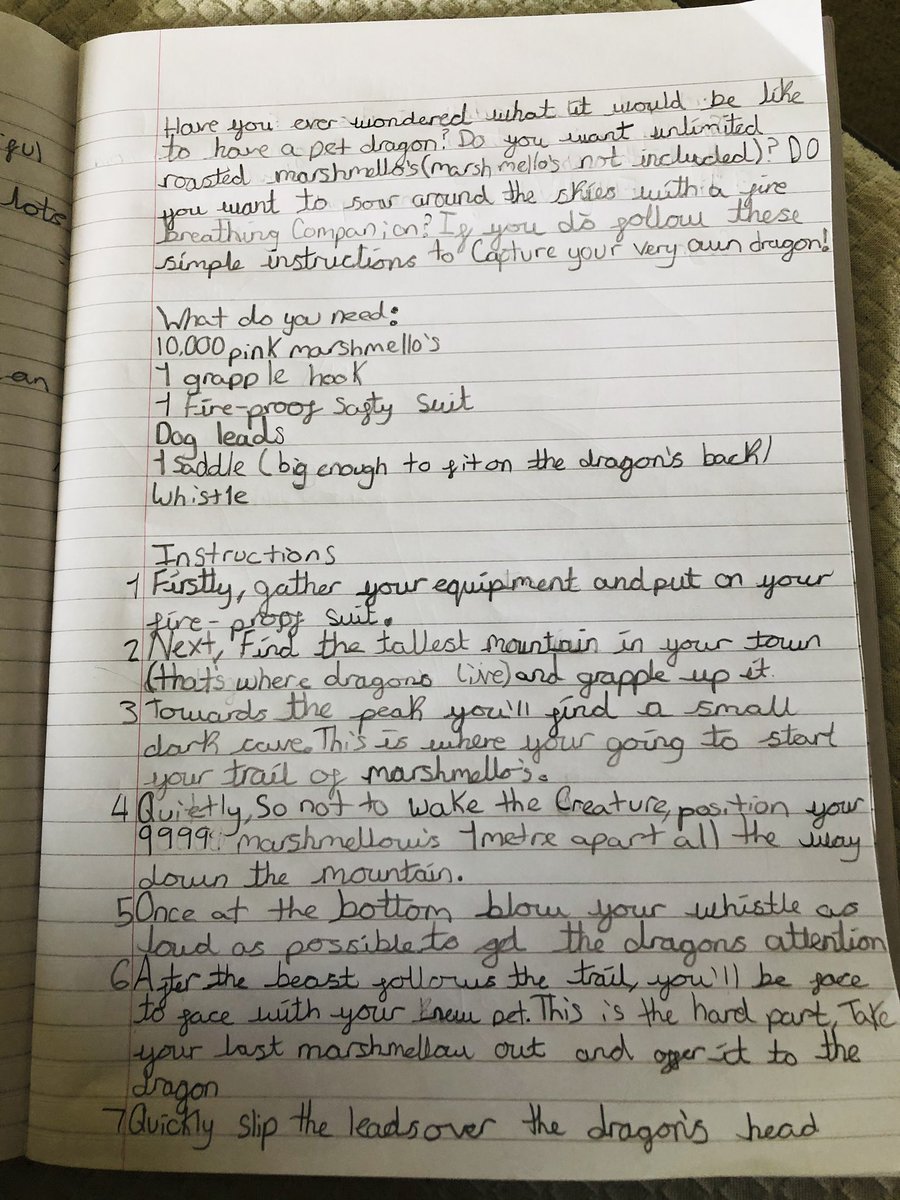 gul
lots
an
Have you ever wondered what it would be like
to have a pet dragon? Do you want unlimited
roasted marshmello's (marshmello's not included)? DO
you want to sour around the skies with a fire
breathing Companion? If you do follow these
simple instructions to Capture your very own dragon!
What do you need:
10,000 pink marshmello's
1 grapple hook
1 Fire-proof Safty Suit
Dog leads
1 saddle (big enough to fit on the dragon's back)
Whistle
Instructions
1 Firstly, gather your equiptment and put on your
fire-proof suit.
2 Next, Find the tallest mountain in your town
(that's where dragons live) and grapple up it.
3 Towards the peak you'll find a small
dark cave. This is where your going to start
your trail of marshmello's.
4 Quietly, So not to wake the Creature, position your
9999 marshmellow's 1 metre apart all the way
down the mountain.
5 Once at the bottom blow your whistle as
loud as possible to get the dragons attention
6 After the beast follows the trail, you'll be face
to face with your new pet. This is the hard part, Take
your last marshmellow out and offer it to the
dragon
7 Quickly slip the leads over the dragon's head